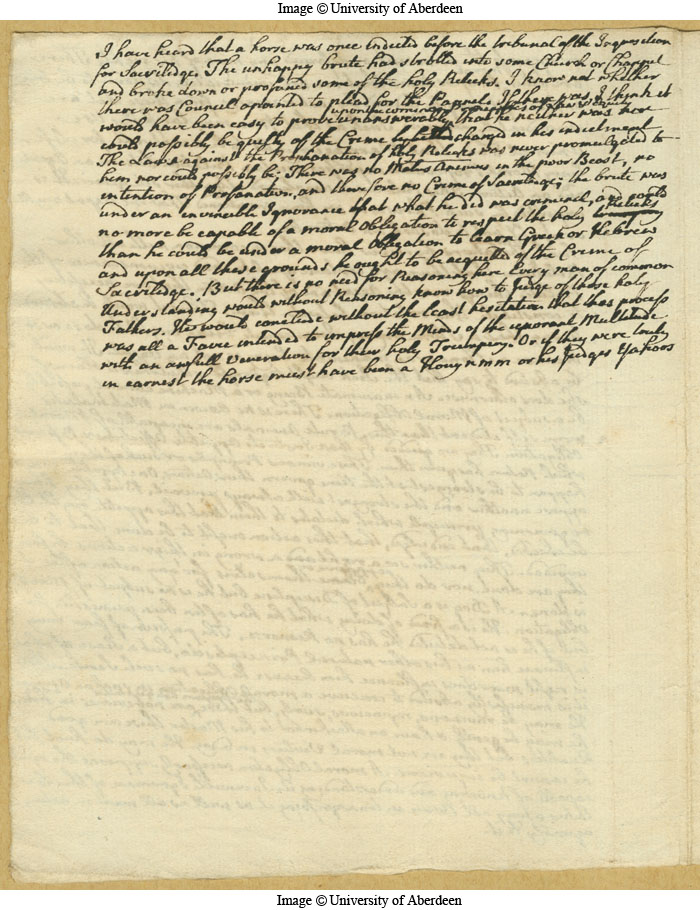 Image © University of Aberdeen
I have heard that a horse was once indicted before the tribunal of the Inquisition
for Sacriledge. The unhappy brute had strolled into some Church or Chappel
and broke down or profaned some of the holy Relicks. I know not whether
there was Council apointed to plead for the Pannel. If there was, I think it
upon the common principles of Law & Equity
would have been easy to prove unanswerably, that he neither was nor
could possibly be guilty of the Crime charged in his indictment
The Laws against the Prophanation of holy Relicks was never promulgated to
him nor could possibly be; There was no Malus Animus in the poor Beast, no
intention of Profanation, and therefore no Crime of Sacriledge; the brute was
under an invincible Ignorance that what he did was criminal, and could
Relicks
no more be capable of a moral Obligation to respect the holy
than he could be under a moral Obligation to learn Greek or Hebrew
and upon all these grounds he ought to be acquitted of the Crime of
Sacriledge. But there is no need for Reasoning here Every man of common
Understanding would without Reasoning know how to Judge of those holy
Fathers. He would conclude without the least hesitation that this process
was all a Farce intended to impress the Minds of the ignorant Multitude
with an awfull Veneration for their holy Trumpery. Or if they were truly
in earnest the horse must have been a Houynmm or his Judges Yahoos
Image © University of Aberdeen